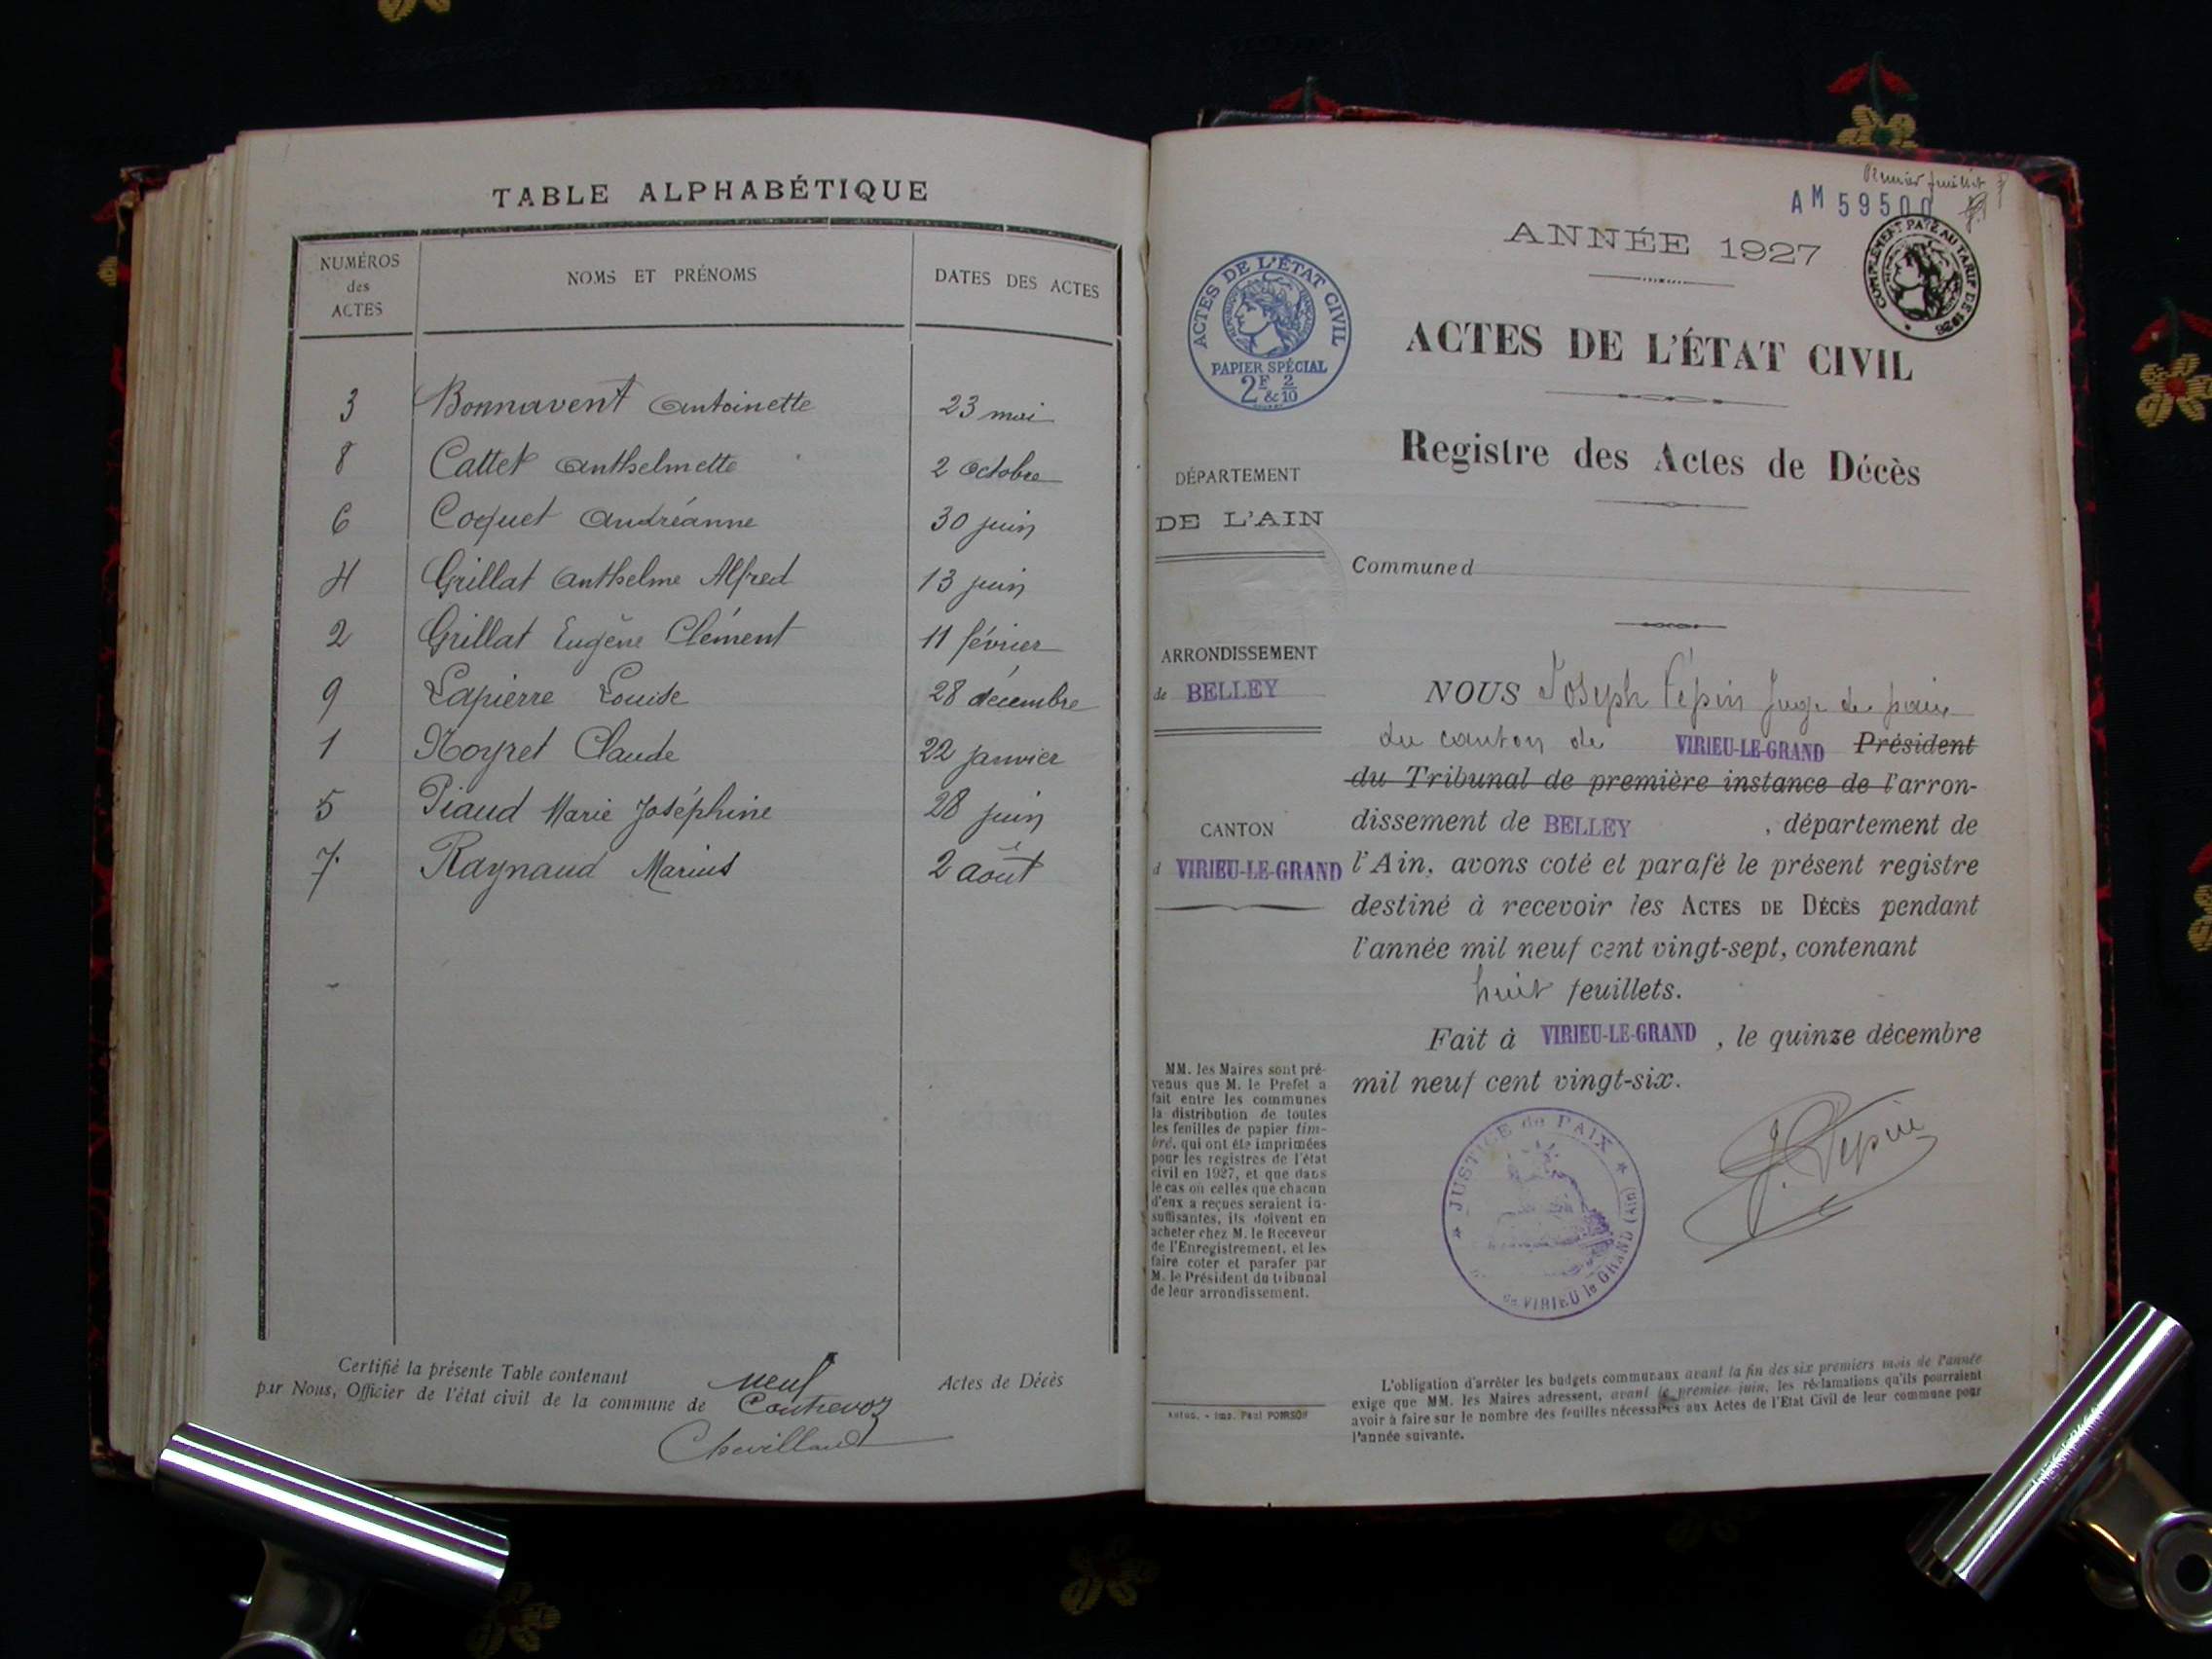 TABLE ALPHABÉTIQUE
NUMÉROS
des
ACTES
NOMS ET PRÉNOMS
DATES DES ACTES
3 Bonnavent Antoinette 23 mai
8 Cattet Anthelmette 2 Octobre
6 Coquet Andréanne 30 juin
4 Grillat Anthelme Alfred 13 juin
2 Grillat Eugène Clément 11 février
9 Lapierre Louise 28 décembre
1 Noyret Claude 22 janvier
5 Piaud Marie Joséphine 28 juin
7 Raynaud Marius 2 août
Certifié la présente Table contenant neuf Actes de Décès
par Nous, Officier de l'état civil de la commune de Contrevoz
Chevilland
Premier feuillet
AM 59500
ANNÉE 1927
COMPLÉMENT PAYÉ AU TARIF DE 1926
ACTES DE L'ÉTAT CIVIL
RÉPUBLIQUE FRANÇAISE
PAPIER SPÉCIAL
2F & 2/10
ACTES DE L'ÉTAT CIVIL
Registre des Actes de Décès
DÉPARTEMENT
DE L'AIN
Commune d
ARRONDISSEMENT
de BELLEY
CANTON
d VIRIEU-LE-GRAND
NOUS Joseph Pépin Juge de paix
du canton de VIRIEU-LE-GRAND Président
du Tribunal de première instance de l'arron-
dissement de BELLEY , département de
l'Ain, avons coté et parafé le présent registre
destiné à recevoir les ACTES DE DÉCÈS pendant
l'année mil neuf cent vingt-sept, contenant
huit feuillets.
Fait à VIRIEU-LE-GRAND , le quinze décembre
mil neuf cent vingt-six.
J. Pépin
JUSTICE de PAIX
de VIRIEU le GRAND (Ain)
MM. les Maires sont pré-
venus que M. le Préfet a
fait entre les communes
la distribution de toutes
les feuilles de papier tim-
bré, qui ont été imprimées
pour les registres de l'état
civil en 1927, et que dans
le cas où celles que chacun
d'eux a reçues seraient in-
suffisantes, ils doivent en
acheter chez M. le Receveur
de l'Enregistrement, et les
faire coter et parafer par
M. le Président du tribunal
de leur arrondissement.
L'obligation d'arrêter les budgets communaux avant la fin des six premiers mois de l'année
exige que MM. les Maires adressent, avant le premier juin, les réclamations qu'ils pourraient
avoir à faire sur le nombre des feuilles nécessaires aux Actes de l'Etat Civil de leur commune pour
l'année suivante.